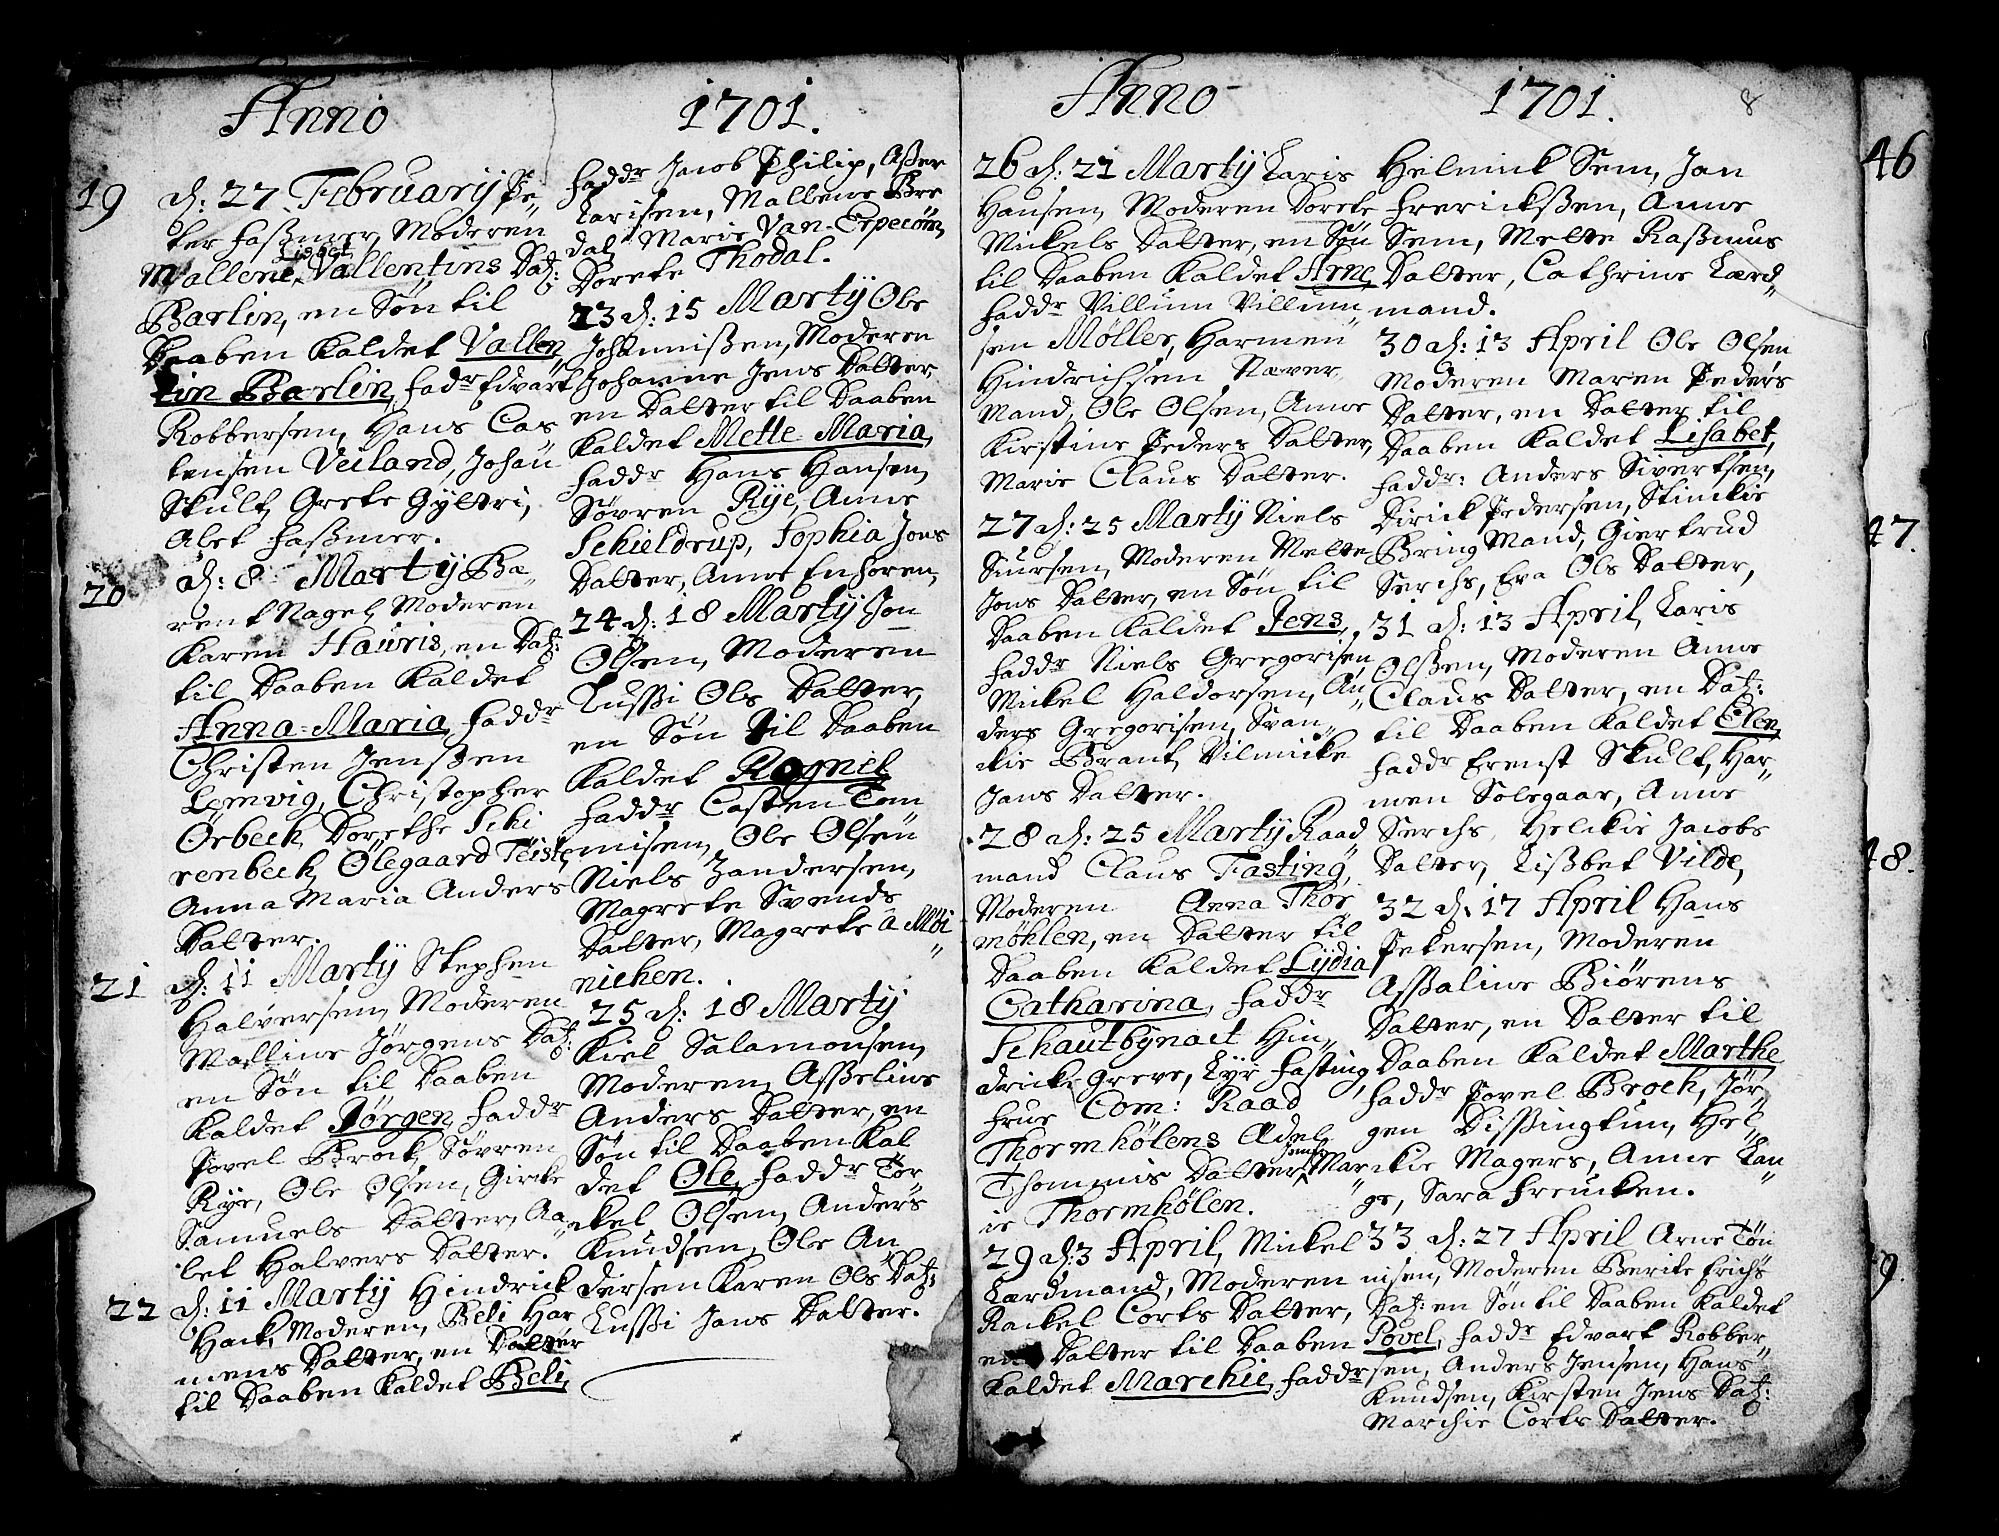 Anno 1701.
19 d: 27 Februarij Pe„
ter Fassmer, Moderen
Lisbet
Mallene, Vallentins Dat:
Barlin, en Søn til
Daaben Kaldet Vallen„
tin Barlin, Fadr Edvart
Robbersen, Hans Cas
tensen Veiland, Johan
Skult, Grete Gyltri,
Abet Fassmer.
20 d: 8 Martij Ba„
rent Nagel, Moderen
Karen Hauris, en Dat:
til Daaben Kaldet
Anna=Maria, Faddr
Christen Jenssen
Lemvig, Christopher
Ørbech, Dorethe Schi
renbech, Ølegaard Teiste,
Anna Maria Anders
Datter.
21 d: 11 Martij Stephen
Halversen, Moderen
Malline Jørgens Dat:
en Søn til Daaben
Kaldet Jørgen, Faddr
Povel Brock, Søvren
Rye, Ole Olsen, Gircke
Samuels Datter, Aa„
let Halvers Datter.
22 d: 11 Martij Hindrick
Hack, Moderen, Beli Har
mens Datter, en Datter
til Daaben Kaldet Beli,
Faddr Jacob Philip, Asser
Larisen, Mallene Bre
dal, Marie Van-Erpecöm,
Dorete Thodal.
23 d: 15 Martij Ole
Johannissen, Moderen
Johanne Jens Datter,
en Datter til Daaben
Kaldet Mette=Maria,
Faddr Hans Hansen,
Søvren Rye, Anne
Schieldrup, Sophia Jons
Datter, Anne Enhoren,
24 d: 18 Martij Jon
Olsen, Moderen
Lussi Ols Datter,
en Søn til Daaben
Kaldet Rognel,
Faddr Casten Ton
misen, Ole Olsen
Niels Zandersen,
Magrete Svends
Datter, Magrete a Möi„
nichen.
25 d: 18 Martij
Kiel Salamonsen,
Moderen, Asseline
Anders Datter, en
Søn til Daaben Kal
det Ole, Faddr Tor
ckel Olsen, Anders
Knudsen, Ole An
dersen Karen Ols Dat:
Lussi Jans Datter.
Anno 1701. 8
26 d: 21 Martij Laris
Hansen, Moderen Dorete
Mickels Datter, en Søn
til Daaben Kaldet Arne,
Faddr Villum Villum„
sen Møller, Harmen
Hindrichsen Naver
Mand, Ole Olsen, Anne
Kirstine Peders Datter,
Marie Claus Datter.
27 d: 25 Martij Niels
Siursen, Moderen Mette
Jons Datter, en Søn til
Daaben Kaldet Jens,
Faddr Niels Gregorisen,
Mickel Haldorsen, An„
ders Gregorisen, Svan„
ckie Brant, Vilmicke
Jans Datter.
28 d: 25 Martij Raad
mand Claus Fasting,
Moderen Anna Thor
möhlen, en Datter til
Daaben Kaldet Lydia
Catharina, Faddr
Schautbynaet Hin„
dricke Greve, Lyr Fasting,
Frue Com: Raad
Thormhölens Ædel
Jomfr
Thommis Datter, Marckie
ie Thormhölen.
29 d: 3 April, Mickel
Lærdmand, Moderen
Rackel Corts Datter,
en Datter til Daaben
Kaldet Marchie, Faddr
Helmick Sem, Jan
Frerickssen, Anne
Sem, Mette Rassmus
Datter, Cathrine Lærd„
mand.
30 d: 13 April Ole Olsen
Moderen Maren Peders
Datter, en Datter til
Daaben Kaldet Lisabet,
Faddr: Anders Sivertsen,
Dirick Pedersen, Stinckie
Bring Mand, Giertrud
Serchs, Eva Ols Datter,
31 d: 13 April, Laris
Olssen, Moderen Anne
Claus Datter, en Dat:
til Daaben Kaldet Elen,
Faddr Ernst Skult, Har„
men Solegaar, Anne
Serchs, Helckie Jacobs
Datter, Lissbet Vilde,
32 d: 17 April Hans
Petersen, Moderen
Assaline Biørens
Datter, en Datter til
Daaben Kaldet Marthe
Faddr Povel Broch, Jør„
gen Dissingtun, Hel„
ckie Magers, Anne Lan„
ge, Sara Freucken.
33 d: 27 April Arne Tøn
nisen, Moderen Berite Erichs
Dat: en Søn til Daaben Kaldet
Povel, Faddr Edvart Robber„
sen, Anders Jensen, Hans
Knudsen, Kirsten Jens Dat:
Marchie Corts Datter.
46
47.
48.
49.